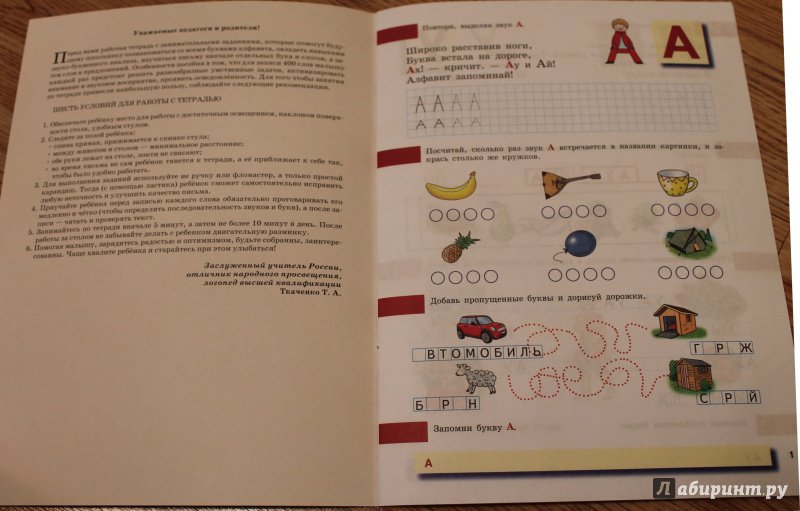 Уважаемые педагоги и родители!
Перед вами рабочая тетрадь с занимательными заданиями, которые помогут буду-
щему школьнику познакомиться со всеми буквами алфавита, овладеть навыками
звуко-буквенного анализа, научиться письму вначале отдельных букв и слогов, а за-
тем слов и предложений. Особенности пособия в том, что для записи 400 слов малышу
каждый раз предстоит решить разнообразные умственные задачи, активизировать
внимание и звуковое восприятие, проявить осведомлённость. Для того чтобы занятия
по тетради принесли наибольшую пользу, соблюдайте следующие рекомендации.
ШЕСТЬ УСЛОВИЙ ДЛЯ РАБОТЫ С ТЕТРАДЬЮ
1. Обеспечьте ребёнку место для работы с достаточным освещением, наклоном поверх-
ности стола, удобным стулом.
2. Следите за позой ребёнка:
- спина прямая, прижимается к спинке стула;
- между животом и столом — минимальное расстояние;
- обе руки лежат на столе, локти не свисают;
- во время письма не сам ребёнок тянется к тетради, а её приближает к себе так,
чтобы было удобно работать.
3. Для выполнения заданий используйте не ручку или фломастер, а только простой
карандаш. Тогда (с помощью ластика) ребёнок сможет самостоятельно исправить
любую неточность и улучшить качество письма.
4. Приучайте ребёнка перед записью каждого слова обязательно проговаривать его
медленно и чётко (чтобы определить последовательность звуков и букв), а после за-
писи — читать и проверять текст.
5. Занимайтесь по тетради вначале 5 минут, а затем не более 10 минут в день. После
работы за столом не забывайте делать с ребёнком двигательную разминку.
6. Помогая малышу, зарядитесь радостью и оптимизмом, будьте собранны, заинтере-
сованны. Чаще хвалите ребёнка и старайтесь при этом улыбаться!
Заслуженный учитель России,
отличник народного просвещения,
логопед высшей квалификации
Ткаченко Т. А.
Повтори, выделяя звук А.
А А
Широко расставив ноги,
Буква встала на дороге,
Ах! — кричит. — Ау и Ай!
Алфавит запоминай!
А А А А
А А А А
Посчитай, сколько раз звук А встречается в названии картинки, и за-
крась столько же кружков.
Добавь пропущенные буквы и дорисуй дорожки.
ВТОМОБИЛЬ
Г Р Ж
Б Р Н
С Р Й
Запомни букву А.
А
1
Лабиринт.ру